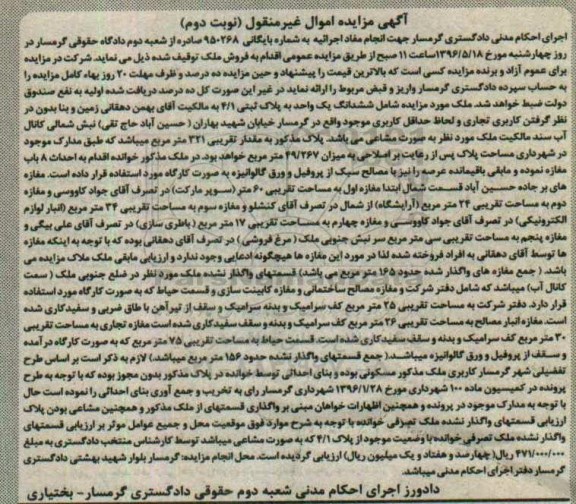 آگهی مزایده اموال غیرمنقول (نوبت دوم)
اجرای احکام مدنی دادگستری گرمسار جهت انجام مفاد اجرائیه به شماره بایگانی ۹۵۰۲۶۸ صادره از شعبه دوم دادگاه حقوقی گرمسار در
روز چهارشنبه مورخ ۱۳۹۶/۵/۱۸ ساعت ۱۱ صبح از طریق مزایده عمومی اقدام به فروش ملک توقیف شده ذیل می نماید. شرکت در مزایده
برای عموم آزاد و برنده مزایده کسی است که بالاترین قیمت را پیشنهاد و حین مزایده ده درصد و ظرف مهلت ۲۰ روز بهاء کامل مزایده را
به حساب سپرده دادگستری گرمسار واریز و قبض مربوط را ارائه نماید در غیر این صورت کل ده درصد دریافت شده اولیه به نفع صندوق
دولت ضبط خواهد شد. ملک مورد مزایده شامل ششدانگ یک واحد به پلاک ثبتی ۴/۱ به مالکیت آقای بهمن دهقانی زمین و بنا بدون در
نظر گرفتن کاربری تجاری و لحاظ حداقل کاربری موجود واقع در گرمسار خیابان شهید بهاران ( حسین آباد حاج تقی) نبش شمالی کانال
آب سند مالکیت ملک مورد نظر به صورت مشاعی می باشد. پلاک مذکور به مقدار تقریبی ۳۲۱ متر مربع میباشد که طبق مدارک موجود
در شهرداری مساحت پلاک پس از رعایت بر اصلاحی به میزان ۴۹/۲۶۷ متر مربع خواهد بود. در ملک مذکور خوانده اقدام به احداث ۸ باب
مغازه نموده و مابقی باقیمانده عرصه را نیز با مصالح سبک از پروفیل و ورق گالوانیزه به صورت کارگاه مورد استفاده قرار داده است. مغازه
های بر جاده حسین آباد قسمت شمال ابتدا مغازه اول به مساحت تقریبی ۶۰ متر (سوپر مارکت) در تصرف آقای جواد کاووسی و مغازه
دوم به مساحت تقریبی ۲۴ متر مربع (آرایشگاه) از شمال در تصرف آقای کنشلو و مغازه سوم به مساحت تقریبی ۳۴ متر مربع (انبار لوازم
الکترونیکی) در تصرف آقای جواد کاووسی و مغازه چهارم به مساحت تقریبی ۱۷ متر مربع ( باطری سازی) در تصرف آقای علی بیگی و
مغازه پنجم به مساحت تقریبی سی متر مربع سر نبش جنوبی ملک ( مرغ فروشی ) در تصرف آقای دهقانی بوده که با توجه به اینکه مغازه
ها توسط آقای دهقانی به افراد فروخته شده لذا در مورد این مغازه ها هیچگونه ادعایی وجود ندارد و ارزیابی مابقی ملک ملاک مزایده می
باشد. ( جمع مغازه های واگذار شده حدود ۱۶۵ متر مربع می باشد) قسمتهای واگذار نشده ملک مورد نظر در ضلع جنوبی ملک ( سمت
کانال آب) میباشد که شامل دفتر شرکت و مغازه مصالح ساختمانی و مغازه کابینت سازی و قسمت حیاط که به صورت کارگاه مورد استفاده
قرار دارد. دفتر شرکت به مساحت تقریبی ۲۵ متر مربع کف سرامیک و بدنه سرامیک و سقف از تیرآهن با طاق ضربی و سفیدکاری شده
است. مغازه انبار مصالح به مساحت تقریبی ۲۶ متر مربع کف سرامیک و بدنه و سقف سفیدکاری شده است مغازه تجاری به مساحت تقریبی
۳۰ متر مربع کف سرامیک و بدنه و سقف سفیدکاری شده است. قسمت حیاط به مساحت تقریبی ۷۵ متر مربع که به صورت کارگاه در آمده
و سقف از پروفیل و ورق گالوانیزه میباشد.( جمع قسمتهای واگذار نشده حدود ۱۵۶ متر مربع میباشد) لازم به ذکر است بر اساس طرح
تفضیلی شهر گرمسار کاربری ملک مذکور مسکونی بوده و بنای احداثی توسط خوانده در پلاک مذکور بدون مجوز بوده که با توجه به طرح
پرونده در کمیسیون ماده ۱۰۰ شهرداری مورخ ۱۳۹۶/۱/۲۸ شهرداری گرمسار رای به تخریب و جمع آوری بنای احداثی را نموده است حال
با توجه به مدارک موجود در پرونده و همچنین اظهارات خواهان مبنی بر واگذاری قسمتهای از ملک مذکور و همچنین مشاعی بودن پلاک
ارزیابی قسمتهای واگذار نشده ملک تصرفی خوانده با توجه به شرح موارد فوق موقعیت محل و جمیع عوامل موثر بر ارزیابی قسمتهای
واگذار نشده ملک تصرفی خوانده با وضعیت موجود از پلاک ۴/۱ که به صورت مشاعی میباشد توسط کارشناس منتخب دادگستری به مبلغ
۴۷۱/۰۰۰/۰۰۰ ریال (چهارصد و هفتاد و یک میلیون ریال) ارزیابی گردیده است. محل انجام مزایده: گرمسار بلوار شهید بهشتی دادگستری
گرمسار دفتر اجرای احکام مدنی میباشد.
دادورز اجرای احکام مدنی شعبه دوم حقوقی دادگستری گرمسار- بختیاری